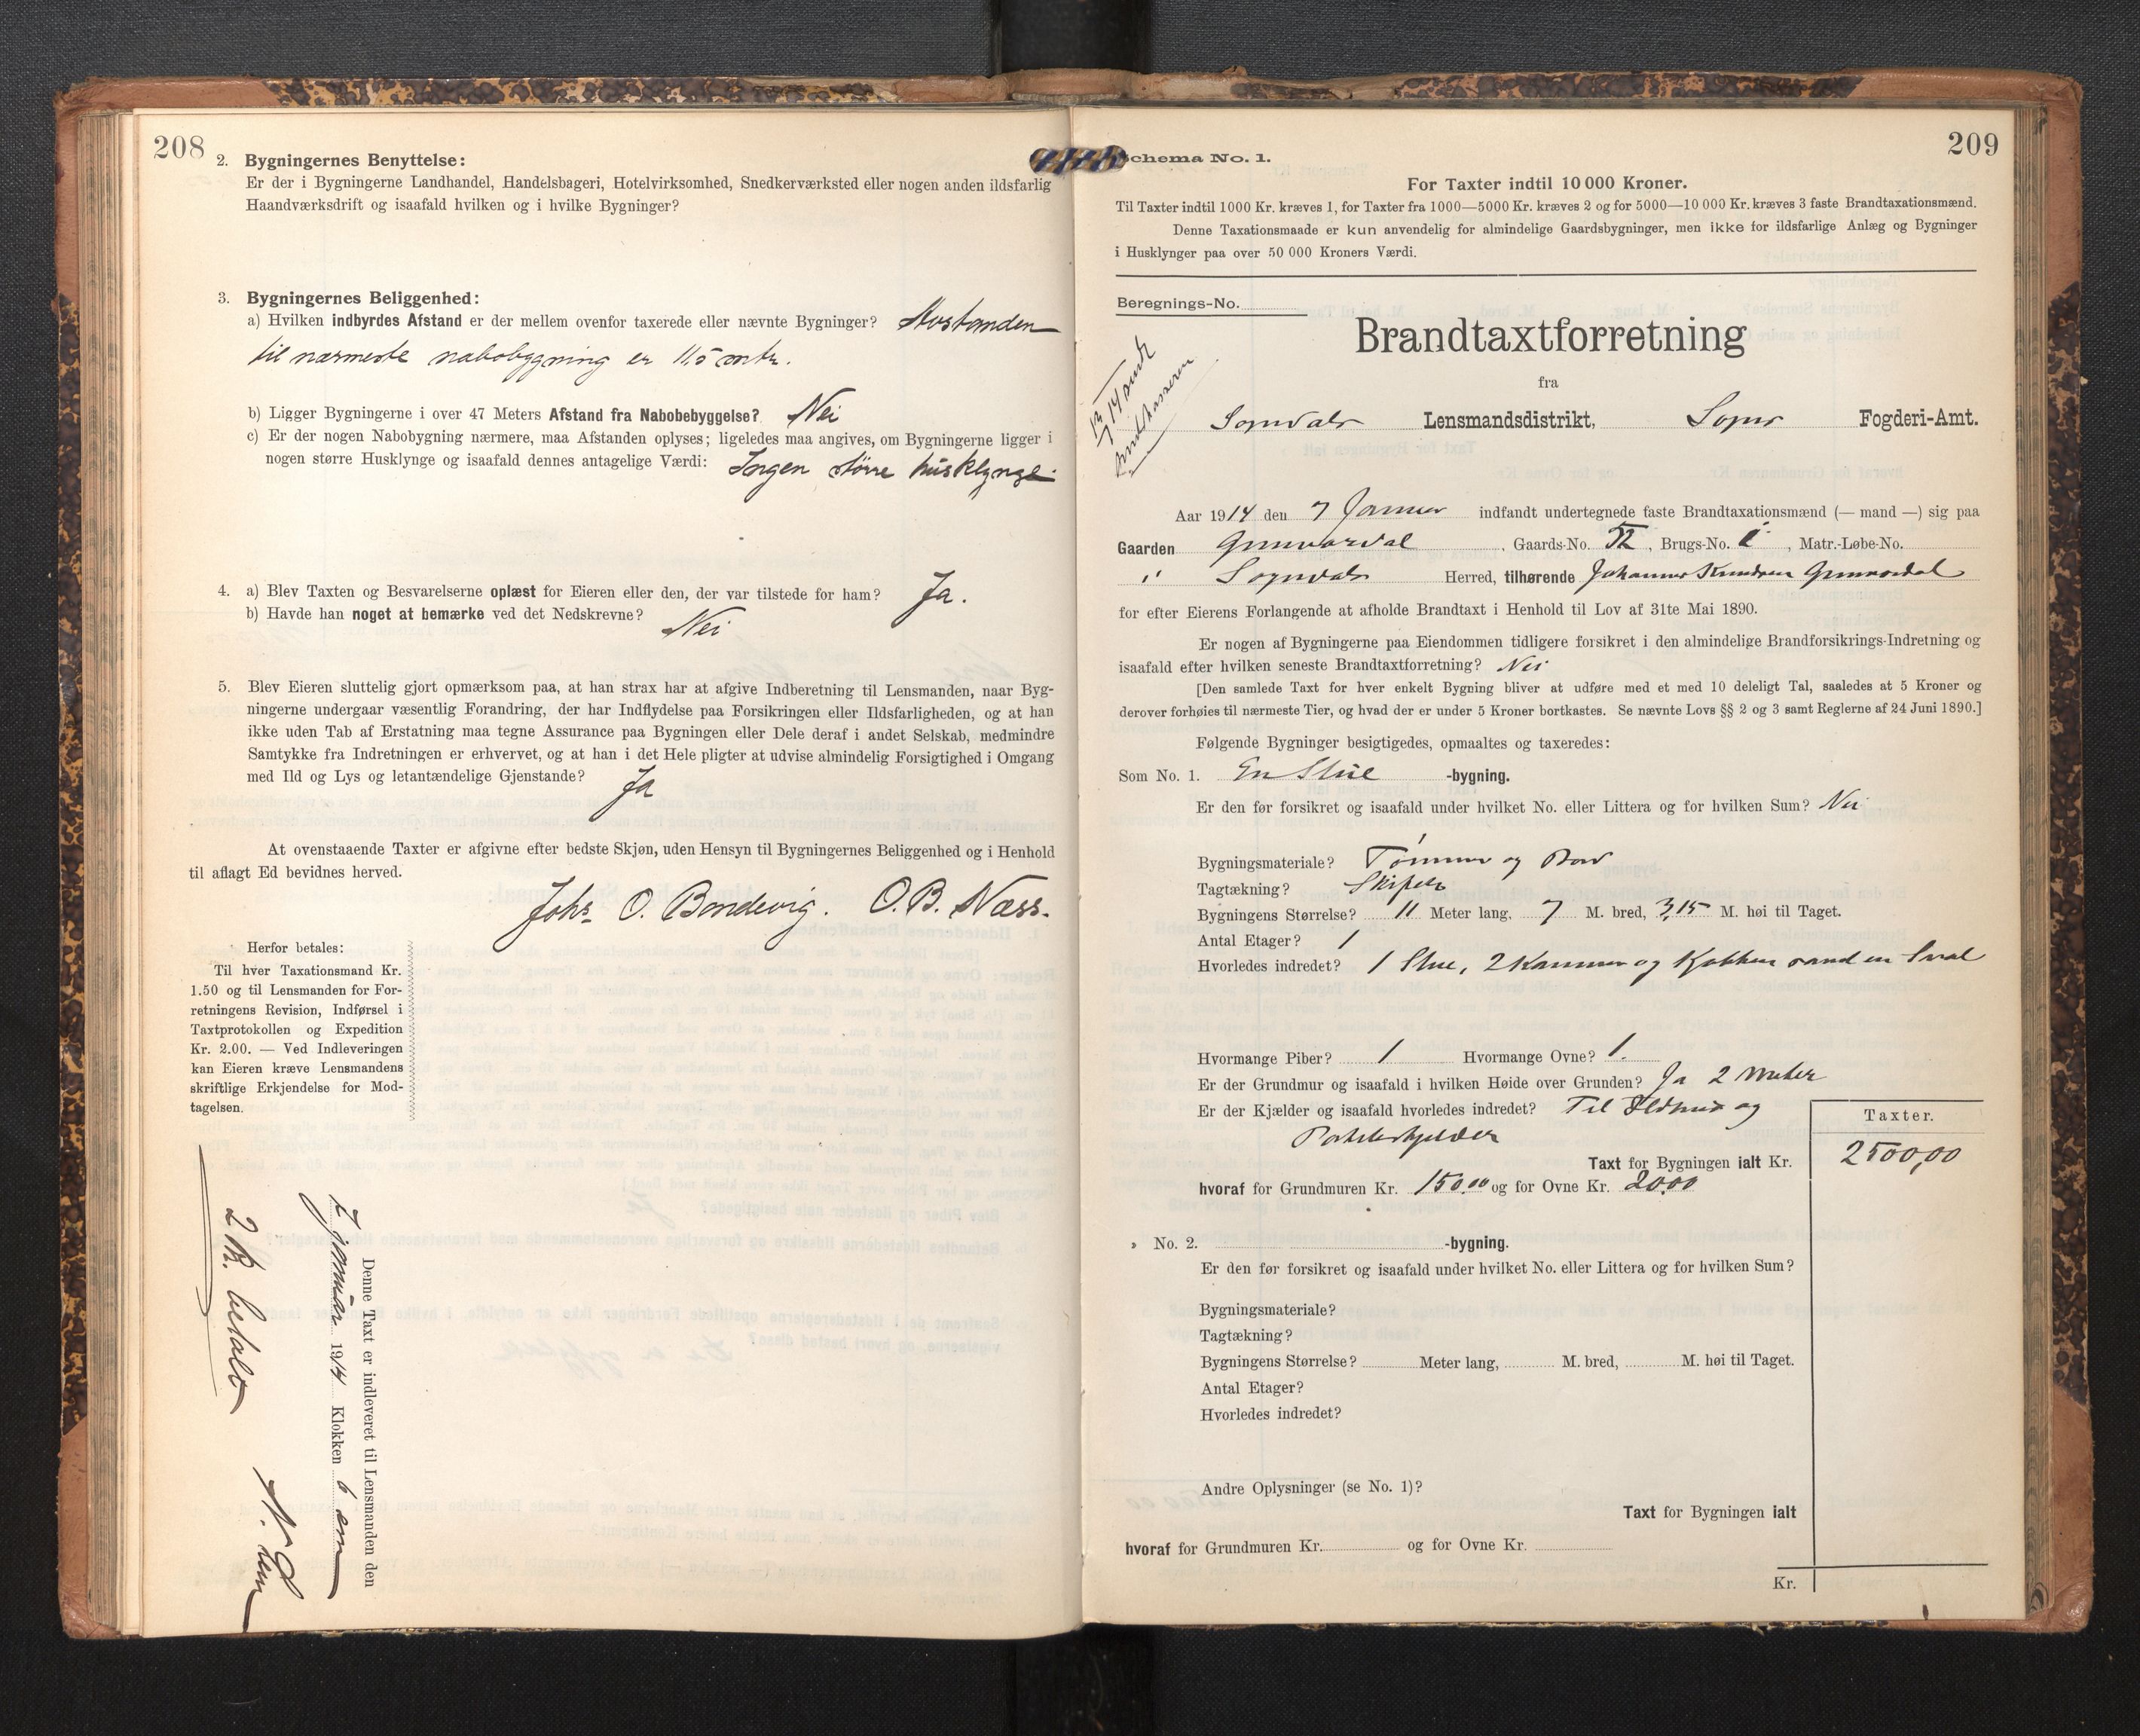 208
2. Bygningernes Benyttelse:
Er der i Bygningerne Landhandel, Handelsbageri, Hotelvirksomhed, Snedkerværksted eller nogen anden ildsfarlig
Haandværksdrift og isaafald hvilken og i hvilke Bygninger?
3. Bygningernes Beliggenhed:
a) Hvilken indbyrdes Afstand er der mellem ovenfor taxerede eller nævnte Bygninger? Avstanden
til nærmeste nabobyggning er 11,5 mtr.
b) Ligger Bygningerne i over 47 Meters Afstand fra Nabobebyggelse? Nei
c) Er der nogen Nabobygning nærmere, maa Afstanden oplyses; ligeledes maa angives, om Bygningerne ligger i
nogen større Husklynge og isaafald dennes antagelige Værdi: Ingen større husklynge.
4. a) Blev Taxten og Besvarelserne oplæst for Eieren eller den, der var tilstede for ham? Ja.
b) Havde han noget at bemærke ved det Nedskrevne? Nei
5. Blev Eieren sluttelig gjort opmærksom paa, at han strax har at afgive Indberetning til Lensmanden, naar Byg-
ningerne undergaar væsentlig Forandring, der har Indflydelse paa Forsikringen eller Ildsfarligheden, og at han
ikke uden Tab af Erstatning maa tegne Assurance paa Bygningen eller Dele deraf i andet Selskab, medmindre
Samtykke fra Indretningen er erhvervet, og at han i det Hele pligter at udvise almindelig Forsigtighed i Omgang
med Ild og Lys og letantændelige Gjenstande? Ja
At ovenstaaende Taxter er afgivne efter bedste Skjøn, uden Hensyn til Bygningernes Beliggenhed og i Henhold
til aflagt Ed bevidnes herved.
Johs. O. Bondevig. O.B. Næss.
Herfor betales:
Til hver Taxationsmand Kr.
1.50 og til Lensmanden for For-
retningens Revision, Indførsel i
Taxtprotokollen og Expedition
Kr. 2.00. — Ved Indleveringen
kan Eieren kræve Lensmandens
skriftlige Erkjendelse for Mod-
tagelsen.
Denne Taxt er indleveret til Lensmanden den
7 januar 1914 Klokken 6 em
2 Kr. betalt
209
Schema No. 1.
For Taxter indtil 10 000 Kroner.
Til Taxter indtil 1000 Kr. kræves 1, for Taxter fra 1000—5000 Kr. kræves 2 og for 5000—10 000 Kr. kræves 3 faste Brandtaxationsmænd.
Denne Taxationsmaade er kun anvendelig for almindelige Gaardsbygninger, men ikke for ildsfarlige Anlæg og Bygninger
i Husklynger paa over 50 000 Kroners Værdi.
Beregnings-No.
Brandtaxtforretning
fra
Sogndals Lensmandsdistrikt, Sogns Fogderi-Amt.
Aar 1914 den 7 Januar indfandt undertegnede faste Brandtaxationsmænd (— mand —) sig paa
Gaarden Gunvordal, Gaards-No. 52, Brugs-No. 1, Matr.-Løbe-No.
i Sogndals Herred, tilhørende Johannes Knudsen Gunvordal
for efter Eierens Forlangende at afholde Brandtaxt i Henhold til Lov af 31te Mai 1890.
Er nogen af Bygningerne paa Eiendommen tidligere forsikret i den almindelige Brandforsikrings-Indretning og
isaafald efter hvilken seneste Brandtaxtforretning? Nei
[Den samlede Taxt for hver enkelt Bygning bliver at udføre med et med 10 deleligt Tal, saaledes at 5 Kroner og
derover forhøies til nærmeste Tier, og hvad der er under 5 Kroner bortkastes. Se nævnte Lovs §§ 2 og 3 samt Reglerne af 24 Juni 1890.]
Følgende Bygninger besigtigedes, opmaaltes og taxeredes:
Som No. 1. En Stue -bygning.
Er den før forsikret og isaafald under hvilket No. eller Littera og for hvilken Sum? Nei
Bygningsmateriale? Tømmer og Bord
Tagtækning? Skifer
Bygningens Størrelse? 11 Meter lang, 7 M. bred, 3,15 M. høi til Taget.
Antal Etager? 1
Hvorledes indredet? 1 Stue, 2 Kammer og Kjøkken samt en Sval
Hvormange Piber? 1 Hvormange Ovne? 1.
Er der Grundmur og isaafald i hvilken Høide over Grunden? Ja 2 Meter
Er der Kjælder og isaafald hvorledes indredet? Til Ildhus og
Potetkjelder
Taxter.
Taxt for Bygningen ialt Kr. 2500,00
hvoraf for Grundmuren Kr. 150.00 og for Ovne Kr. 20.00
" No. 2. -bygning.
Er den før forsikret og isaafald under hvilket No. eller Littera og for hvilken Sum?
Bygningsmateriale?
Tagtækning?
Bygningens Størrelse? Meter lang, M. bred, M. høi til Taget.
Antal Etager?
Hvorledes indredet?
Andre Oplysninger (se No. 1)?
Taxt for Bygningen ialt
hvoraf for Grundmuren Kr. og for Ovne Kr.
Kr.